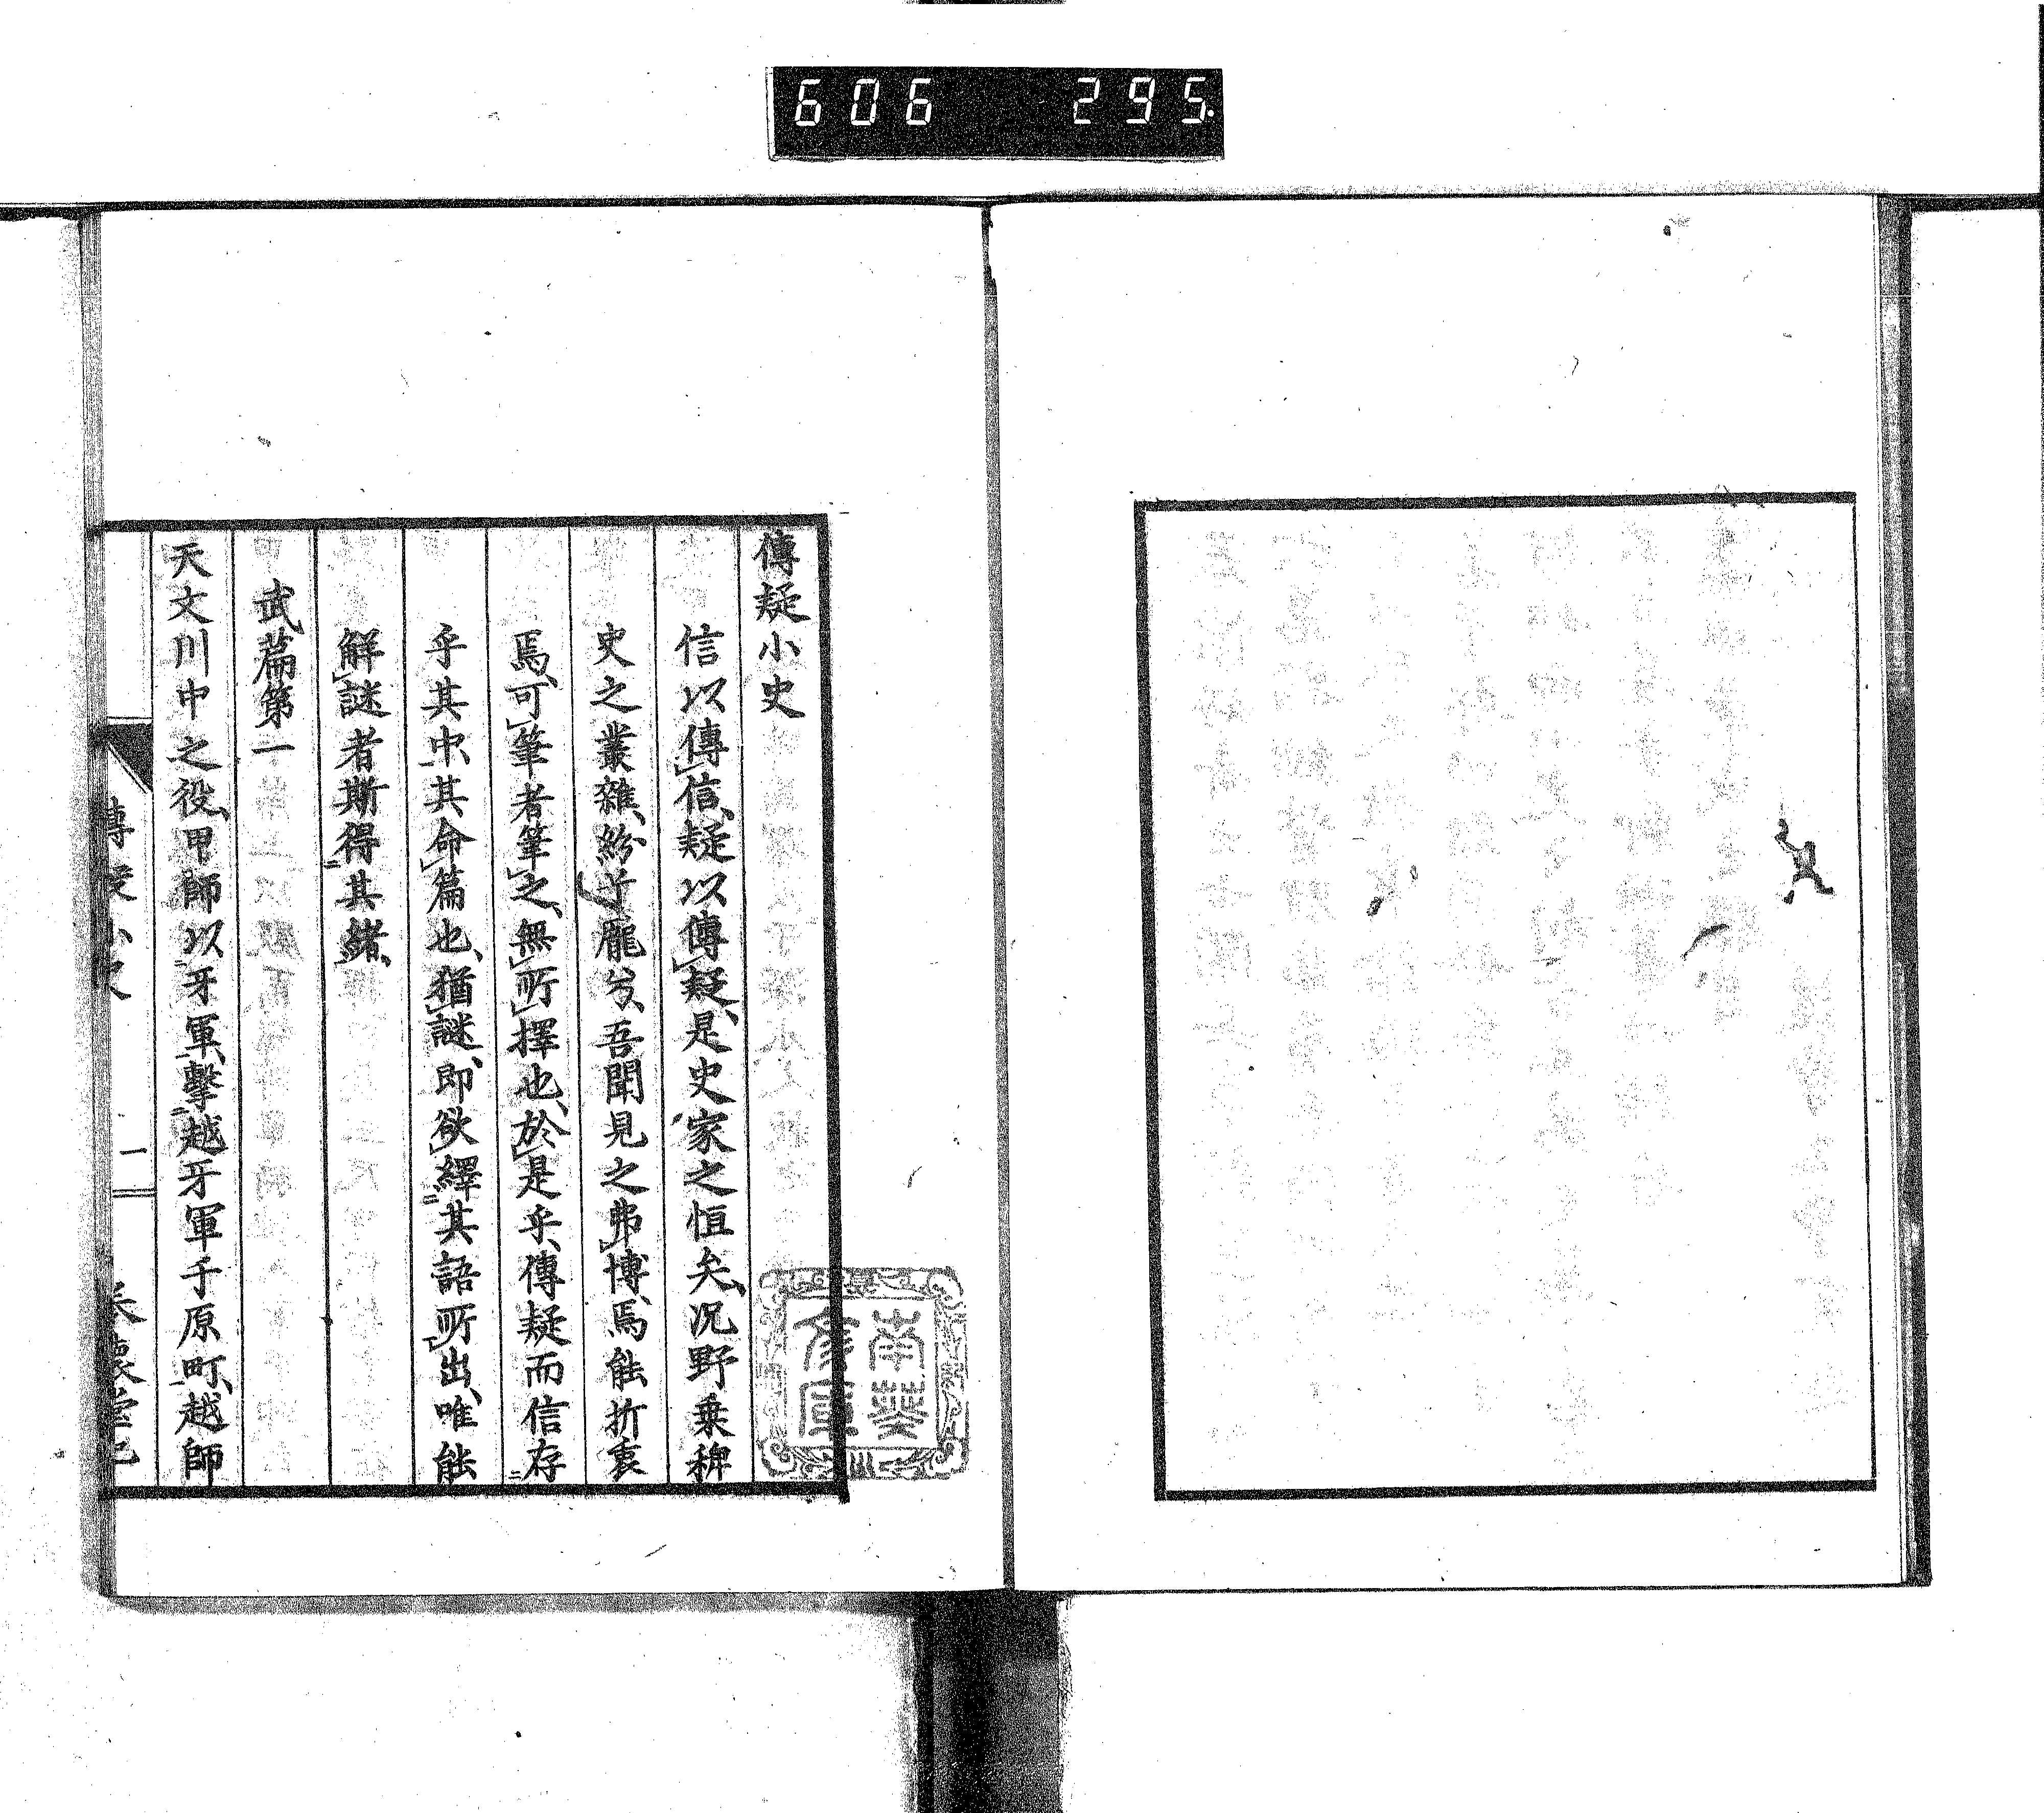 606 295
傳疑小史
信以傳信、疑以傳疑、是史家之恒矣、况野乗稗
史之叢雜、紛乎龐兮、吾聞見之弗博、焉能折衷
焉、可筆者筆之、無所擇也、於是乎、傳疑而信存
乎其中、其命篇也、猶謎、即欲繹其語所出、唯能
解謎者斯得其緒、
武篇第一
天文川中之役、甲師以牙軍、擊越牙軍于原町、越師
傳疑小史
一
南葵
文庫